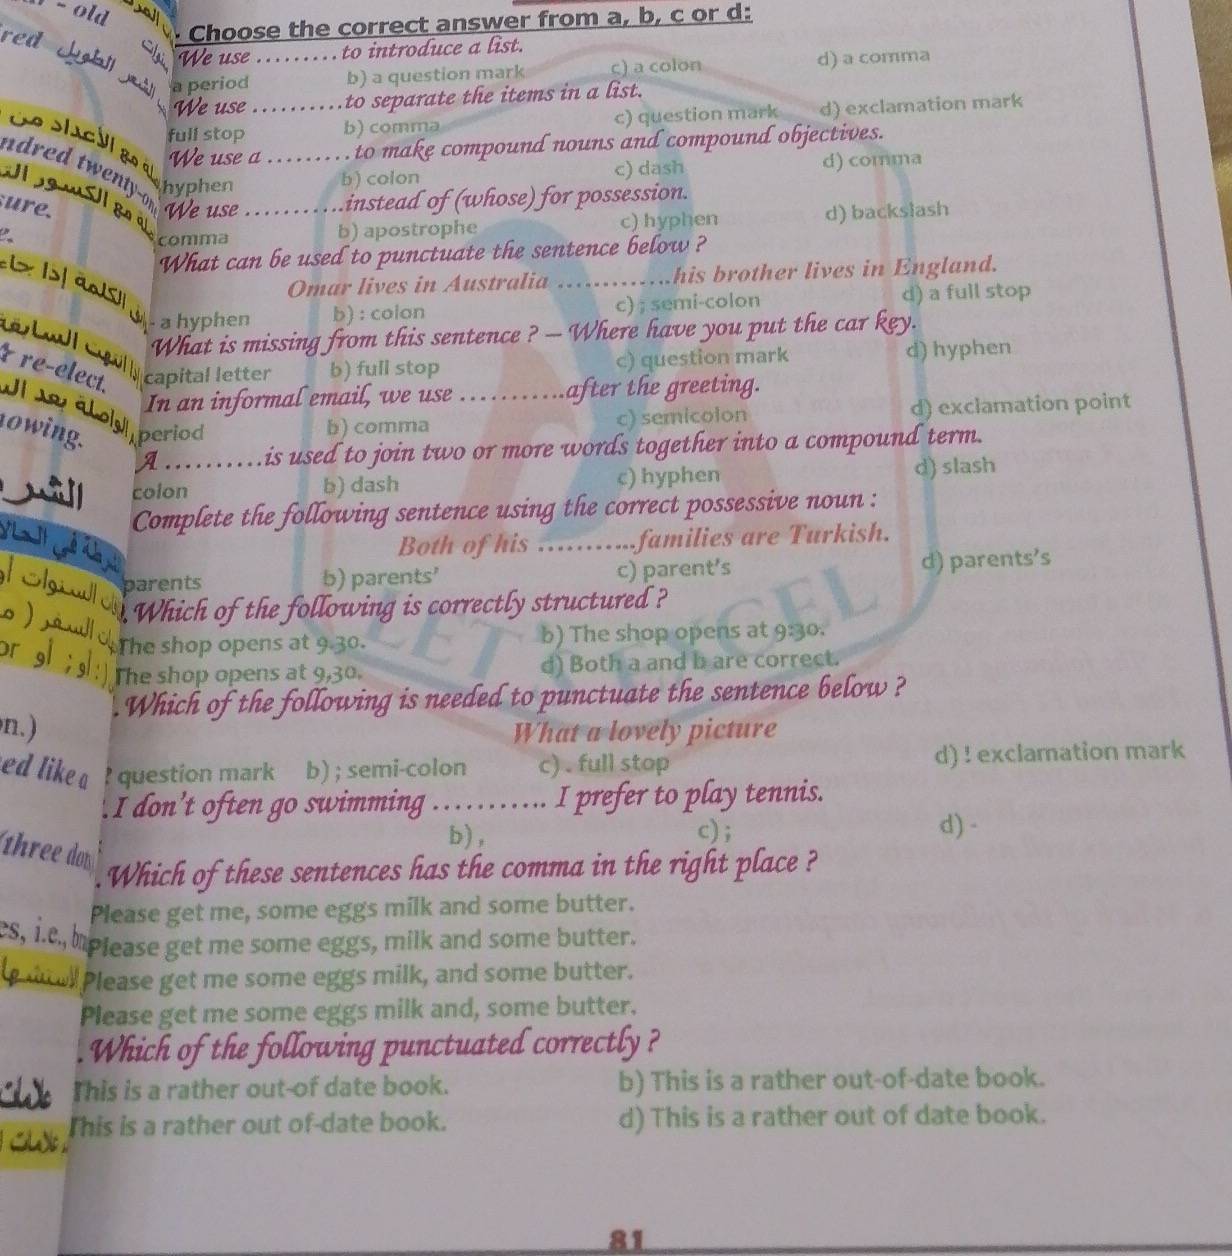 - old
Choose the correct answer from a, b, c or d:
red
We use ......... to introduce a list.
a period b) a question mark c) a colon d) a comma
We use ..........to separate the items in a list.
full stop b) comma c) question mark d) exclamation mark
We use a ......... to make compound nouns and compound objectives.
hyphen b) colon c) dash d) comma
ndred twenty-on
We use ...........instead of (whose) for possession.
sure.
comma b) apostrophe c) hyphen d) backslash
What can be used to punctuate the sentence below ?
Omar lives in Australia .............his brother lives in England.
- a hyphen b) : colon c) ; semi-colon d) a full stop
What is missing from this sentence ? – Where have you put the car key.
re-elect.
capital letter b) full stop c) question mark d) hyphen
In an informal email, we use ............after the greeting.
lowing.
period b) comma c) semicolon d) exclamation point
A ..........is used to join two or more words together into a compound term.
الشر
colon b) dash c) hyphen d) slash
Complete the following sentence using the correct possessive noun :
Both of his ...........families are Turkish.
parents b) parents' c) parent's d) parents's
Which of the following is correctly structured ?
The shop opens at 9.30. b) The shop opens at 9:30.
The shop opens at 9,30. d) Both a and b are correct.
. Which of the following is needed to punctuate the sentence below ?
n.)
What a lovely picture
ed like a
? question mark b) ; semi-colon c) . full stop d) ! exclamation mark
. I don't often go swimming ........... I prefer to play tennis.
b) , c) ; d) -
(three don
. Which of these sentences has the comma in the right place ?
Please get me, some eggs milk and some butter.
es, i.e.,
Please get me some eggs, milk and some butter.
Please get me some eggs milk, and some butter.
Please get me some eggs milk and, some butter.
. Which of the following punctuated correctly ?
This is a rather out-of date book. b) This is a rather out-of-date book.
This is a rather out of-date book. d) This is a rather out of date book.
81